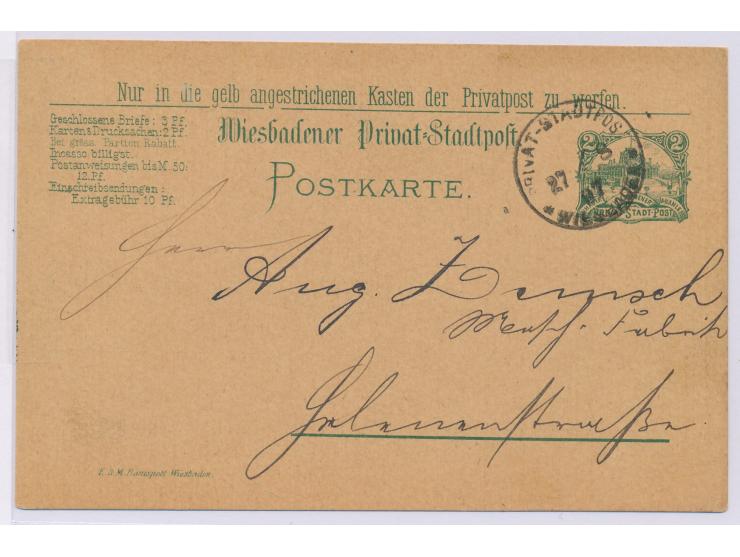 Nur in die gelb angestrichenen Kasten der Privatpost zu werfen.
Geschlossene Briefe: 3 Pf.
Karten & Drucksachen: 2 Pf.
Bei gröss. Partien Rabatt.
Incasso billigst.
Postanweisungen bis M. 50:
12. Pf.
Einschreibsendungen:
Extragebühr 10 Pf.
Wiesbadener Privat-Stadtpost
POSTKARTE.
2 2
STADT-POST
PRIVAT-STADTPOST
27
* WIESBADEN *
Herrn
Aug. Zemsch
Masch. Fabrik
Helenenstraße.
Wiesbaden.